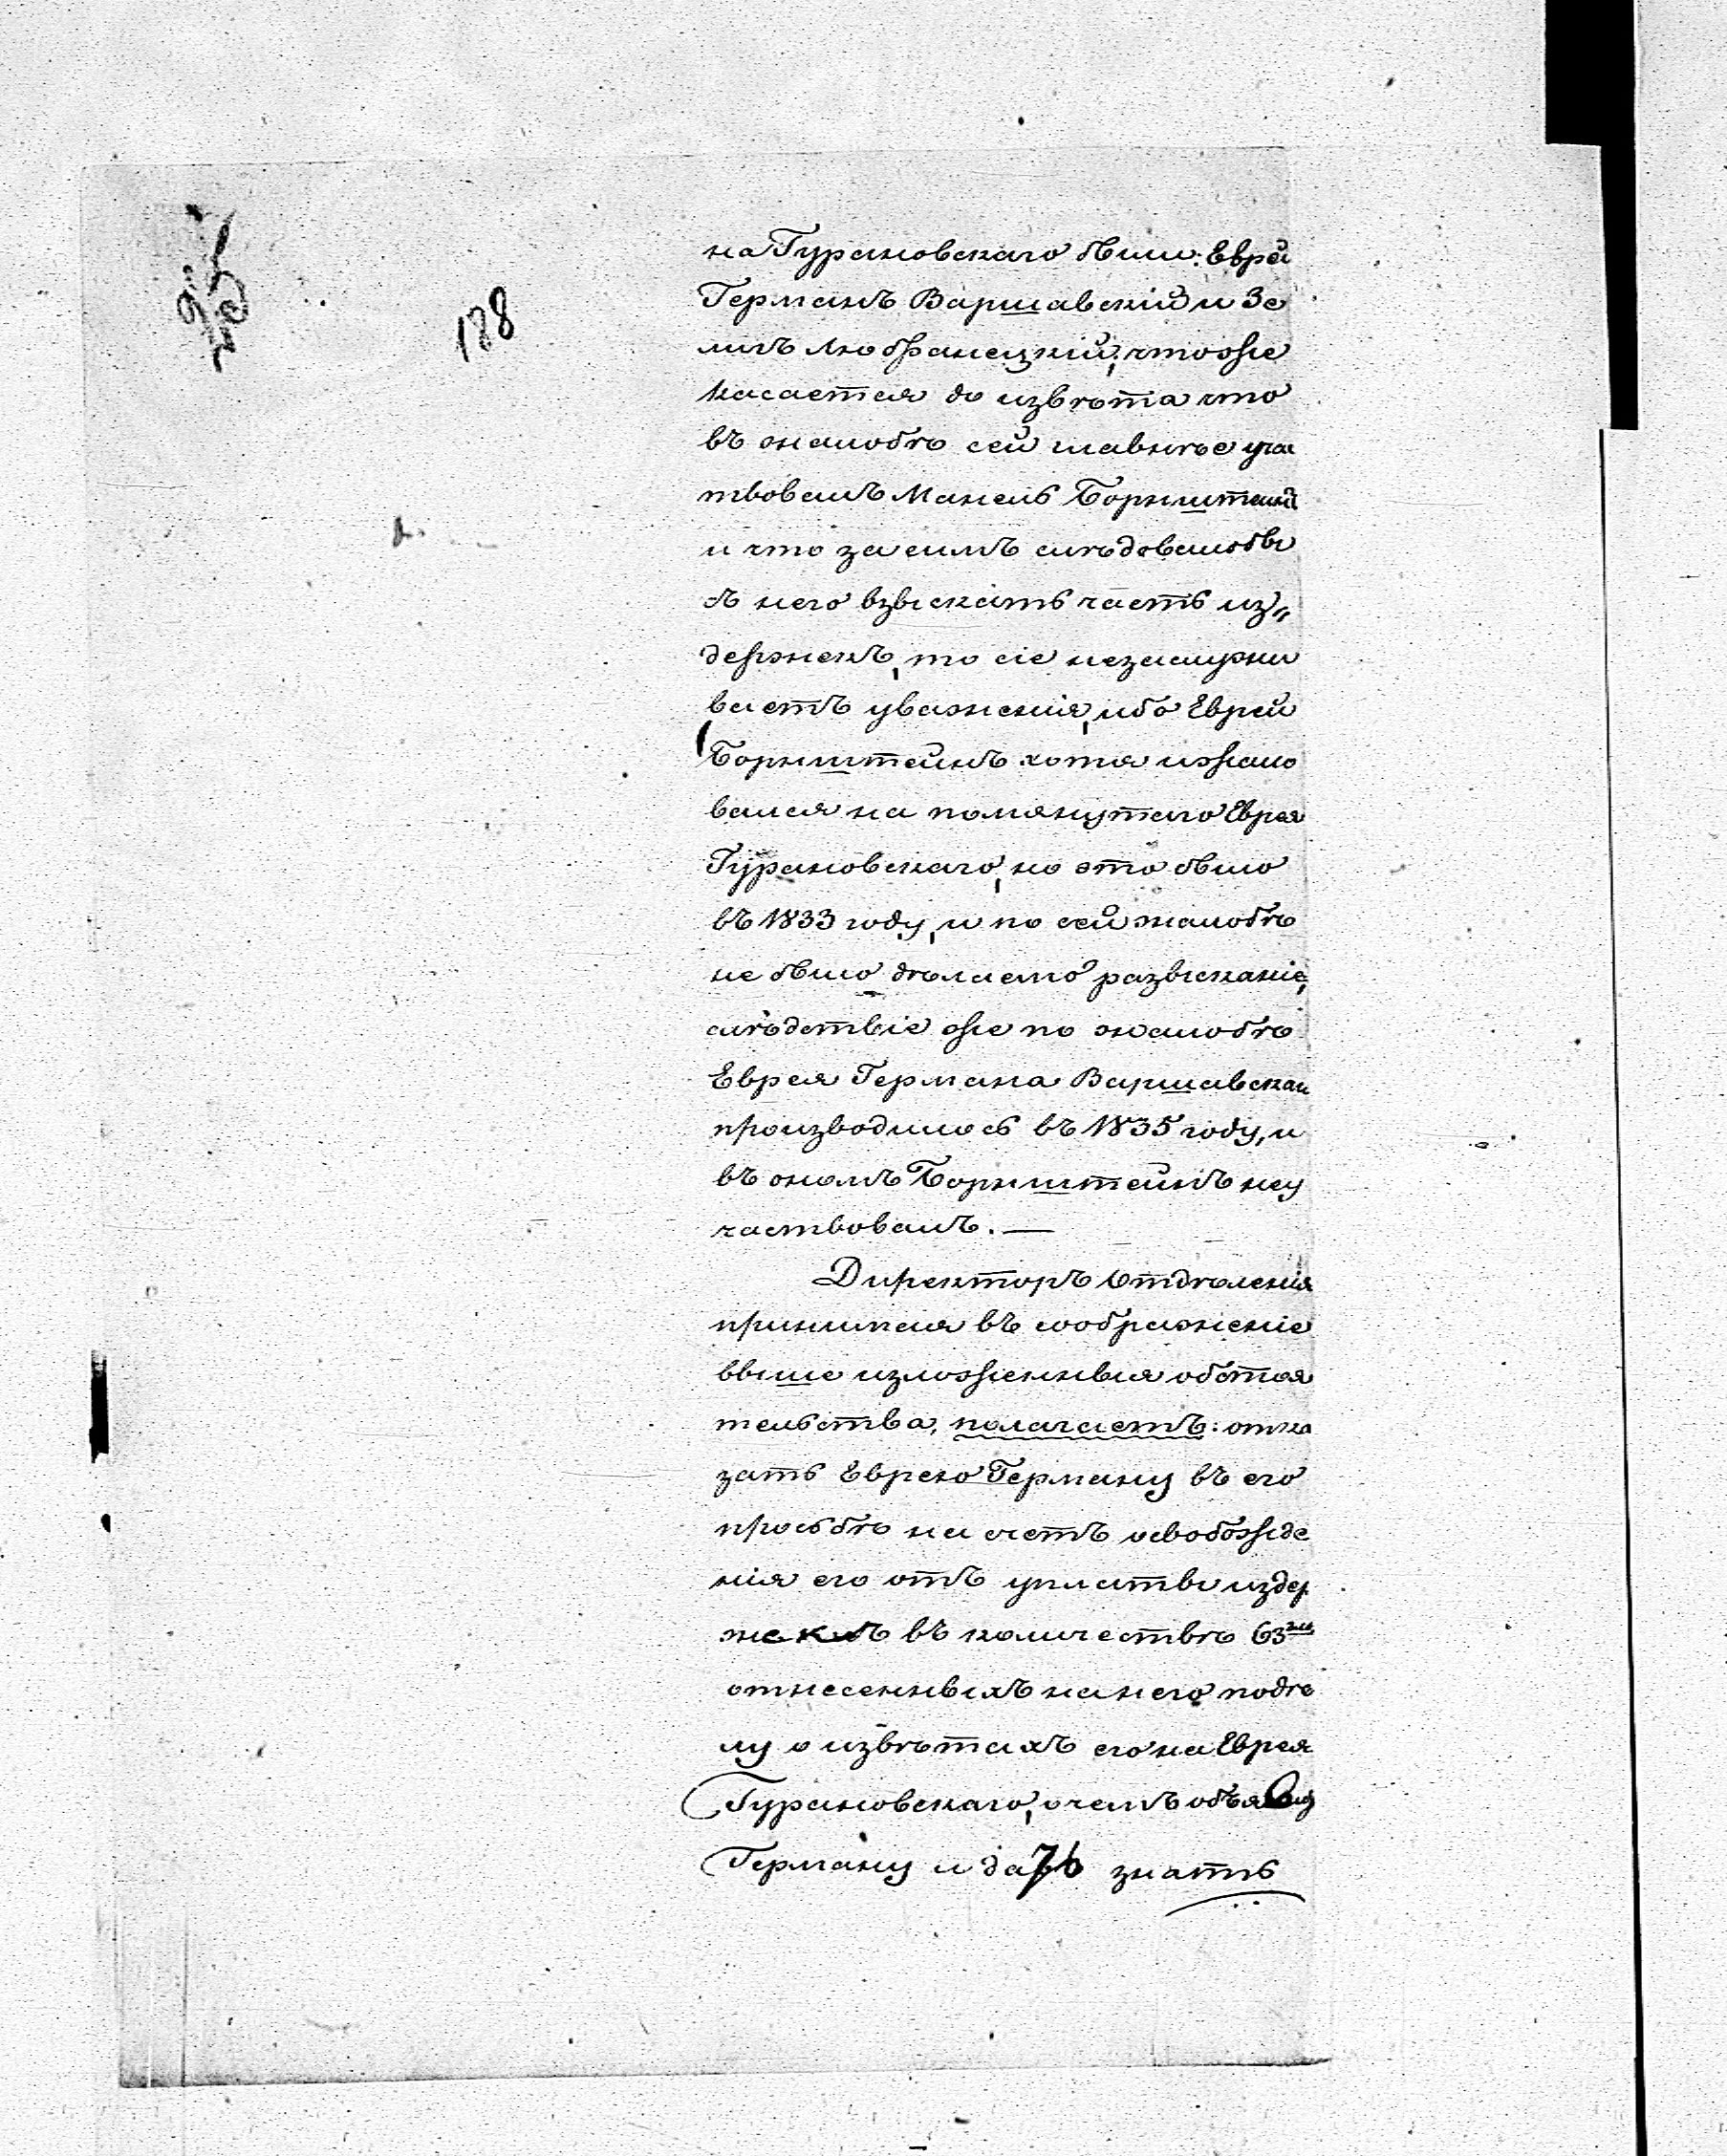 128
на Гурановскаго были: Евреи
Германъ Варшавскій и Зе
ликъ Любранецкій, чтоже
касается до извѣта что
въ жалобѣ сей главнѣе уча
твовалъ Манель Борнштейнъ
и что за симъ слѣдовалобы
съ него взыскать часть из„
держекъ, то сіе незаслужи
ваетъ уваженія, ибо Еврей
Борнштейнъ хотя и жало
вался на помянутаго Еврея
Гурановскаго, но это было
въ 1833 году, и по сей жалобѣ
не было дѣлаемо разысканіе,
слѣдствіе же по жалобѣ
Еврея Германа Варшавскаго
производилось въ 1835 году, и
въ ономъ Борнштейнъ неу
частвовалъ. —
Директоръ Отдѣленія
принимая въ соображеніе
выше изложенныя обстоя
тельства, полагаетъ: отка
зать Еврею Герману въ его
просьбѣ на счетъ освобожде
нія его отъ уплаты издер
жекъ въ количествѣ 63
отнесенныхъ на него подѣ
лу о извѣтахъ его на Еврея
Гурановскаго, о чемъ объявить
Герману и дать знать